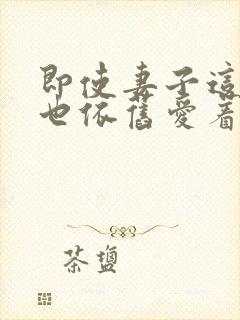 即使妻子這
也依舊愛着
茶鹽